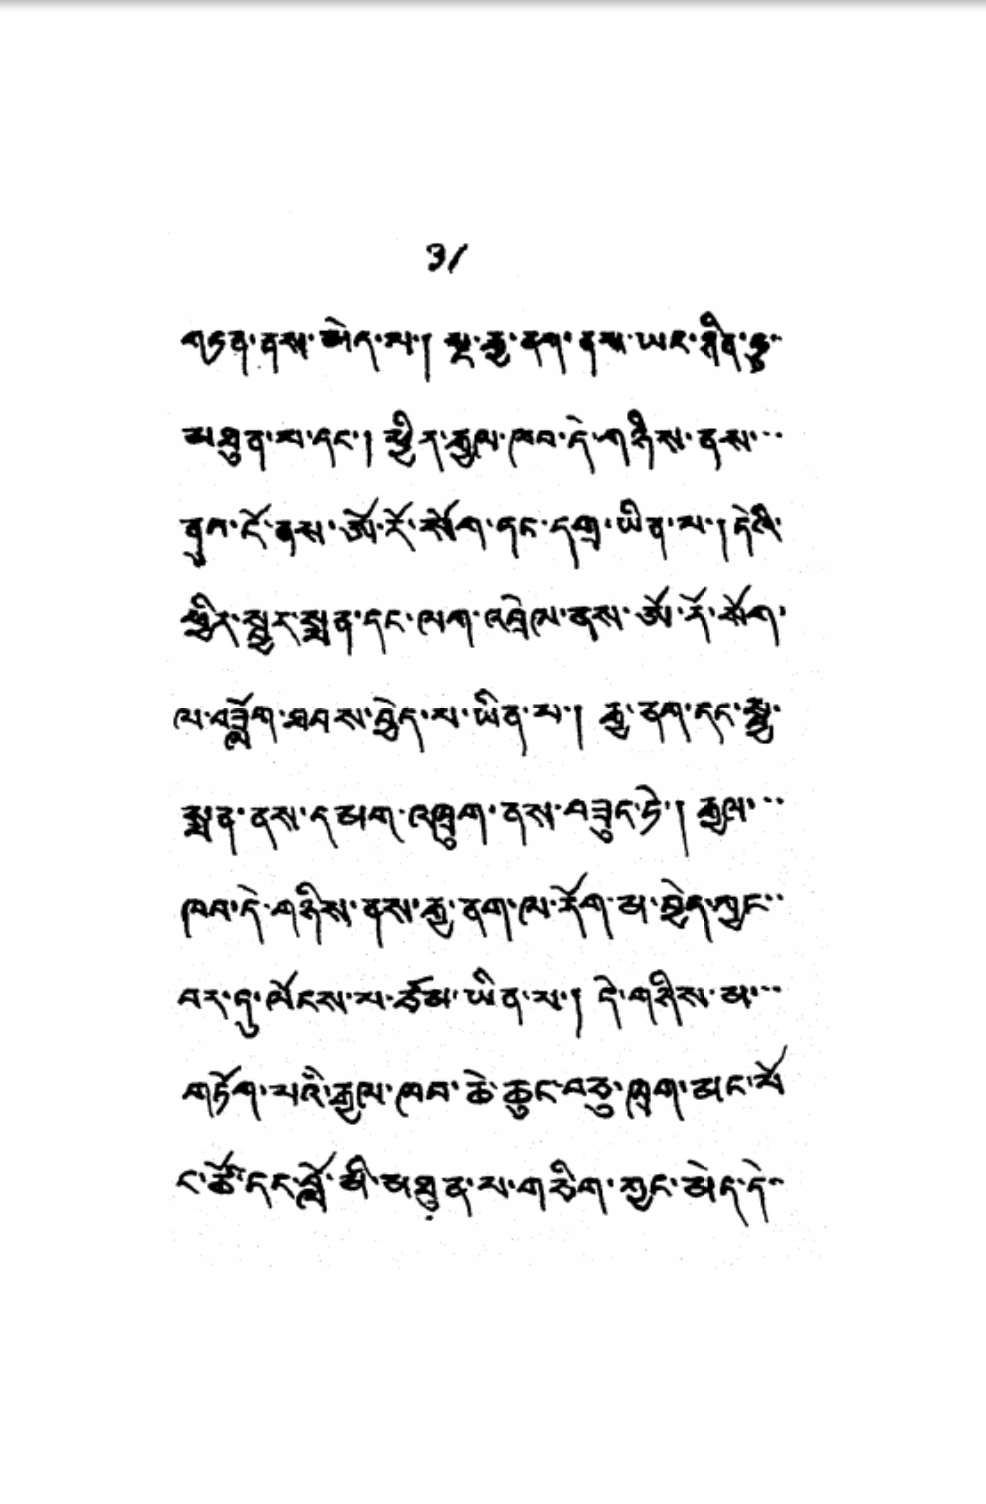 3/
གཏན་ནས་མེད་པ། སྔ་རྒྱ་ནག་ནས་ཡང་ཤིན་ཏུ་
མཐུན་པ་དང་། ཕྱིར་རྒྱལ་ཁབ་དེ་གཉིས་ནས་
ནུབ་ངོ་ནས་ཨོ་རོ་སོག་དང་དགྲ་ཡིན་པ། དེའི་
ཕྱིར་སྦྱར་སྨན་དང་ལག་འབྲེལ་ནས་ཨོ་རོ་སོག་
ལ་བཟློག་ཐབས་བྱེད་པ་ཡིན་པ། རྒྱ་ནག་དང་སྦྱ་
སྨན་ནས་དམག་འཁྲུག་ནས་བཟུང་ཏེ། རྒྱལ་
ཁབ་དེ་གཉིས་ནས་རྒྱ་ནག་ལ་རོག་མ་བྱེད་ཀྱང་
བར་དུ་ལོངས་པ་ཙོམ་ཡིན་པ། དེ་གཉིས་མ་
གཏོག་པའི་རྒྱལ་ཁབ་ཆེ་ཆུང་བཅུ་ཁྲག་མང་པོ་
ང་ཚོ་དང་བློ་མི་མཐུན་པ་གཅིག་ཀྱང་མེད་དེ་